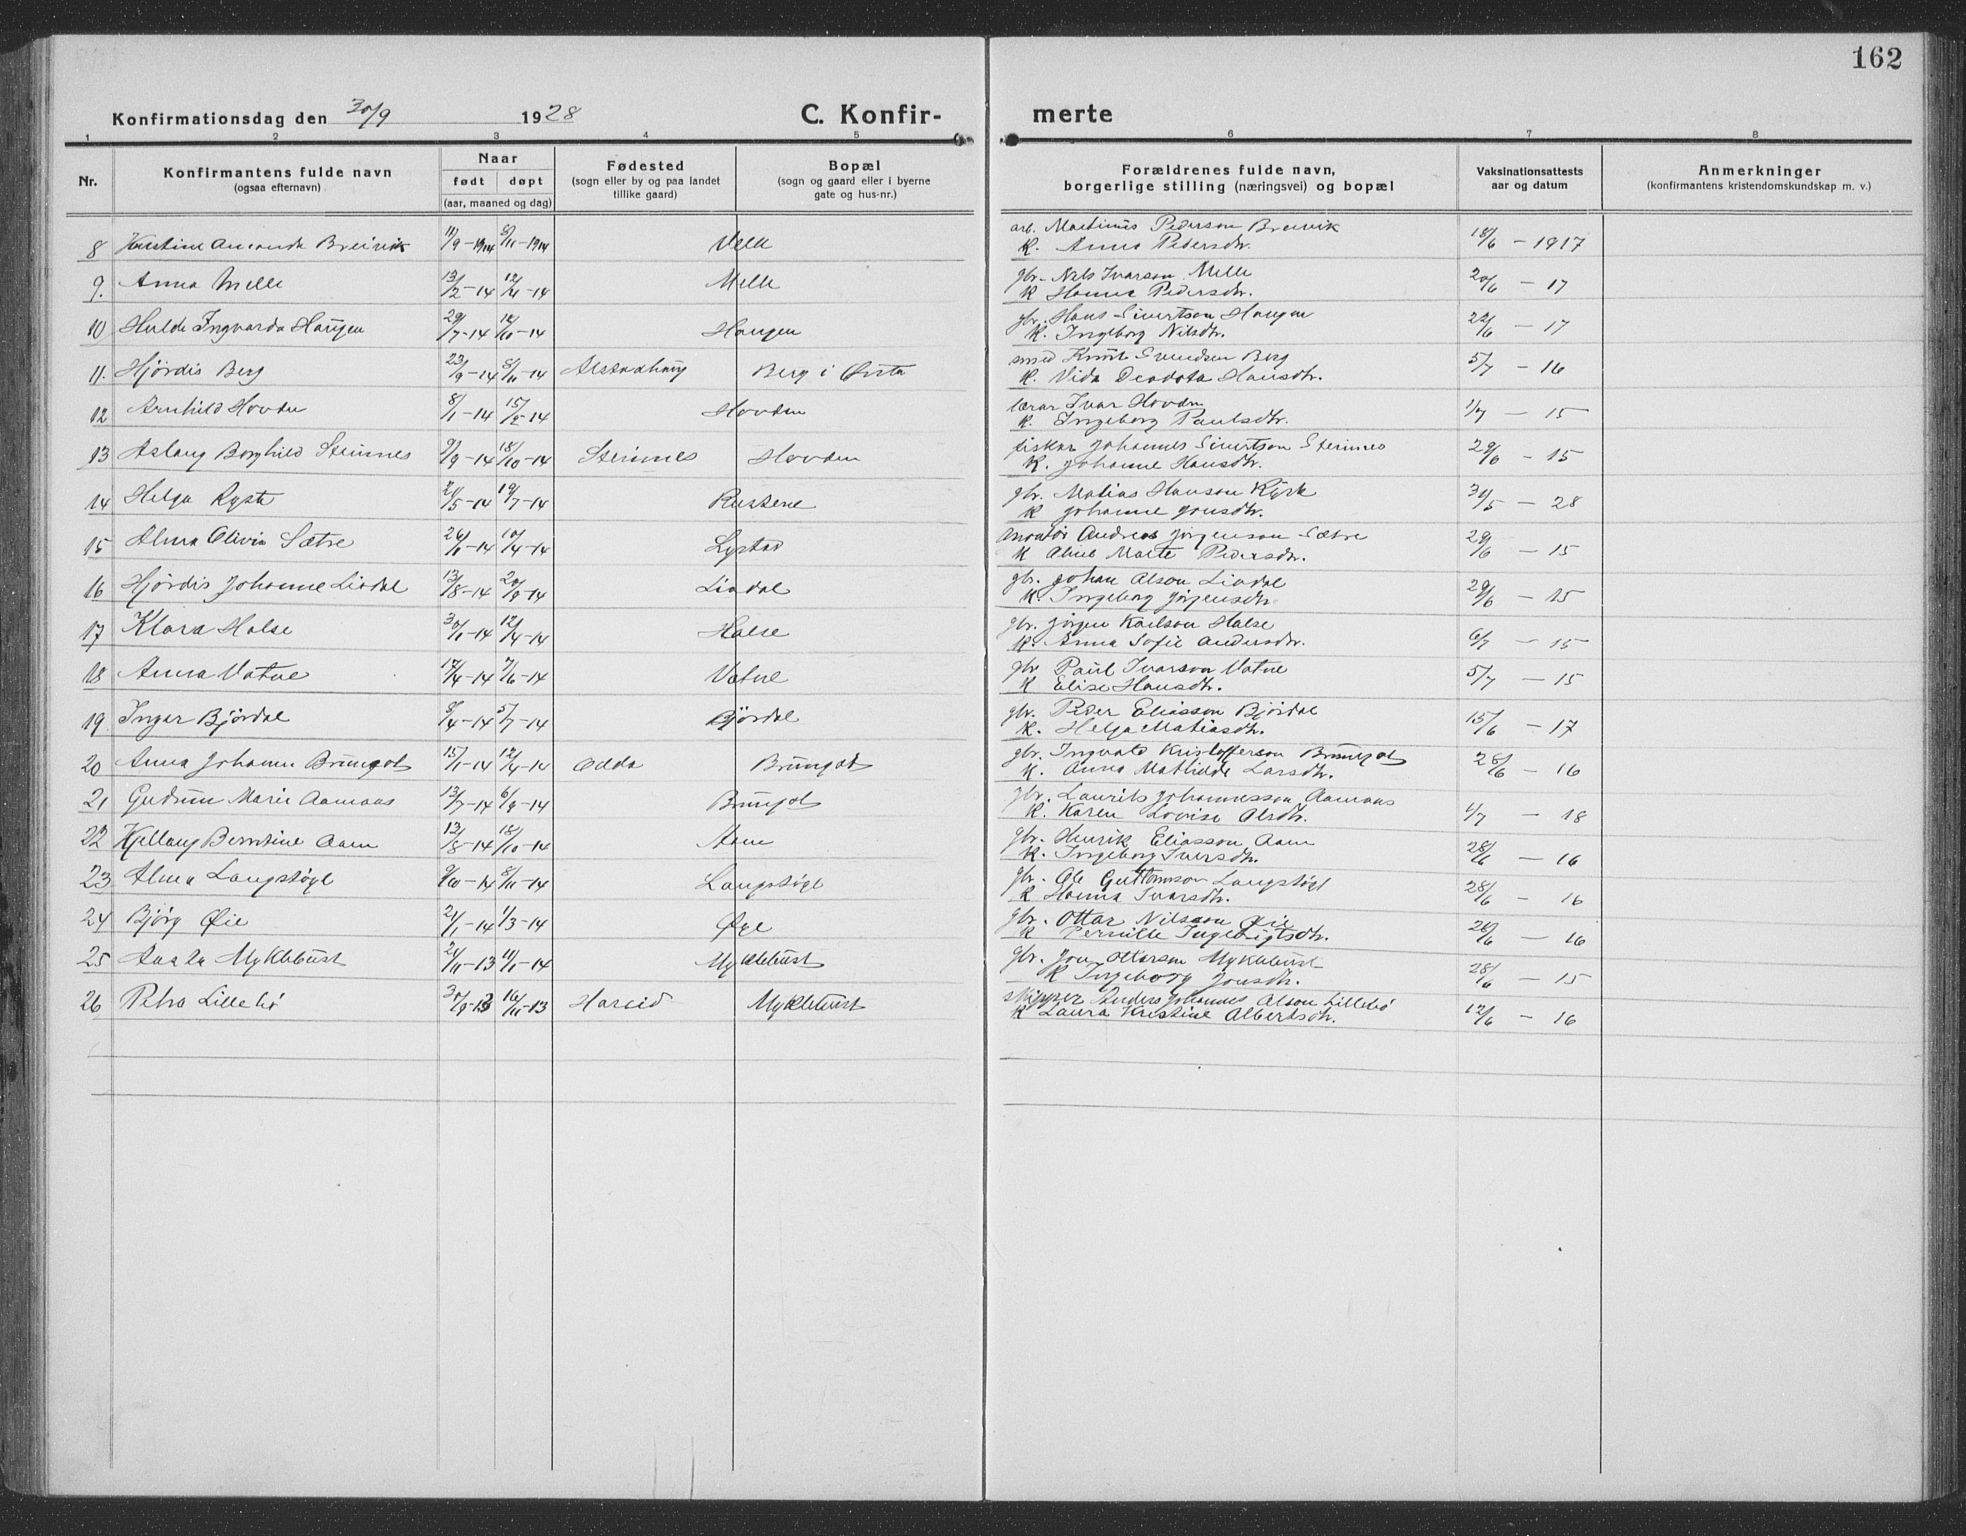 162
Konfirmationsdag den 30/9 1928 C. Konfir- merte
1 2 3 4 5 6 7 8
Nr. Konfirmantens fulde navn (ogsaa efternavn) Naar født døpt (aar, maaned og dag) Fødested (sogn eller by og paa landet tillike gaard) Bopæl (sogn og gaard eller i byerne gate og hus-nr.) Forældrenes fulde navn, borgerlige stilling (næringsvei) og bopæl Vaksinationsattests aar og datum Anmerkninger (konfirmantens kristendomskundskap m. v.)
8 Kristine Amanda Breivik 11/9-1914 8/11-1914 Melle arb. Martinus Pederson Breivik K. Anna Pedersdtr. 18/6 - 1917
9. Anna Melle 13/2-14 12/4-14 Melle gbr. Nils Ivarson Melle K Hanna Pedersdtr. 20/6 - 17
10 Hulda Ingvarda Haugen 29/7-14 18/10-14 Haugen gbr. Hans Sivertson Haugen K. Ingeborg Nilsdtr. 22/6 - 17
11. Hjördis Berg 23/9-14 8/11-14 Alstadhaug Berg i Ørsta smed Knut Svendsen Berg K. Vida Deodata Hansdtr. 5/7 - 16
12 Arnhild Hovden 8/1-14 15/2-14 Hovden lærar Ivar Hovden K. Ingeborg Paulsdtr. 1/7 - 15
13 Aslaug Borghild Steinnes 9/9-14 18/10-14 Steinnes Hovden fiskar Johannes Sivertson Steinnes K. Johanne Hansdtr. 29/6 - 15
14 Helga Rysta 21/5-14 19/7-14 Rustene gbr. Matias Hanson Kyrk K Johanne Jonsdtr. 31/5 - 28
15 Alma Olivia Sætre 26/1-14 10/4-14 Lystad Andreas Jørgenson Sætre K Anne Marte Pedersdtr. 29/6 - 15
16 Hjørdis Johanne Liadal 13/8-14 20/9-14 Liadal gbr. Johan Olson Liadal K. Ingeborg Jørgensdtr. 29/6 - 15
17 Klara Halse 30/1-14 12/4-14 Halse gbr. Jørgen Karlson Halse K. Anna Sofie Andersdtr. 6/7 - 15
18 Anna Vatne 17/4-14 7/6-14 Vatne gbr Paul Ivarson Vatne K Elise Hansdtr. 5/7 - 15
19 Inger Bjørdal 8/4-14 5/7-14 Bjørdal gbr. Peder Eliasson Bjørdal K. Helga Matiasdtr. 15/6 - 17
20 Anna Johanne Brungot 15/1-14 12/4-14 Odda Brungot gbr. Ingvald Kristofferson Brungot K. Anna Mathilde Larsdtr. 28/6 - 16
21 Gudrun Marie Aamaas 13/7-14 6/9-14 Brungot gbr. Laurits Johannesson Aamaas K. Karen Lovise Olsdtr. 1/7 - 18
22 Kjellaug Berntine Aam 13/8-14 18/10-14 Aam gbr. Henrik Eliasson Aam K. Ingeborg Iversdtr. 28/6 - 16
23 Alma Langstøyl 9/10-14 8/11-14 Langstøyl gbr. Ole Guttormson Langstøyl K Hanna Ivarsdtr. 28/6 - 16
24 Bjørg Øie 21/1-14 1/3-14 Øye gbr. Ottar Nilsson Øie K Pernille Ingebrigtsdtr. 28/6 - 16
25 Aasta Myklebust 24/11-13 11/1-14 Myklebust gbr. Jon Ottarson Myklebust K Ingeborg Jonsdtr. 28/6 - 15
26 Petra Lillebø 30/9-13 16/11-13 Hareid Myklebust skipper Anders Johannes Olson Lillebø K Laura Kristine Albertsdtr. 12/6 - 16